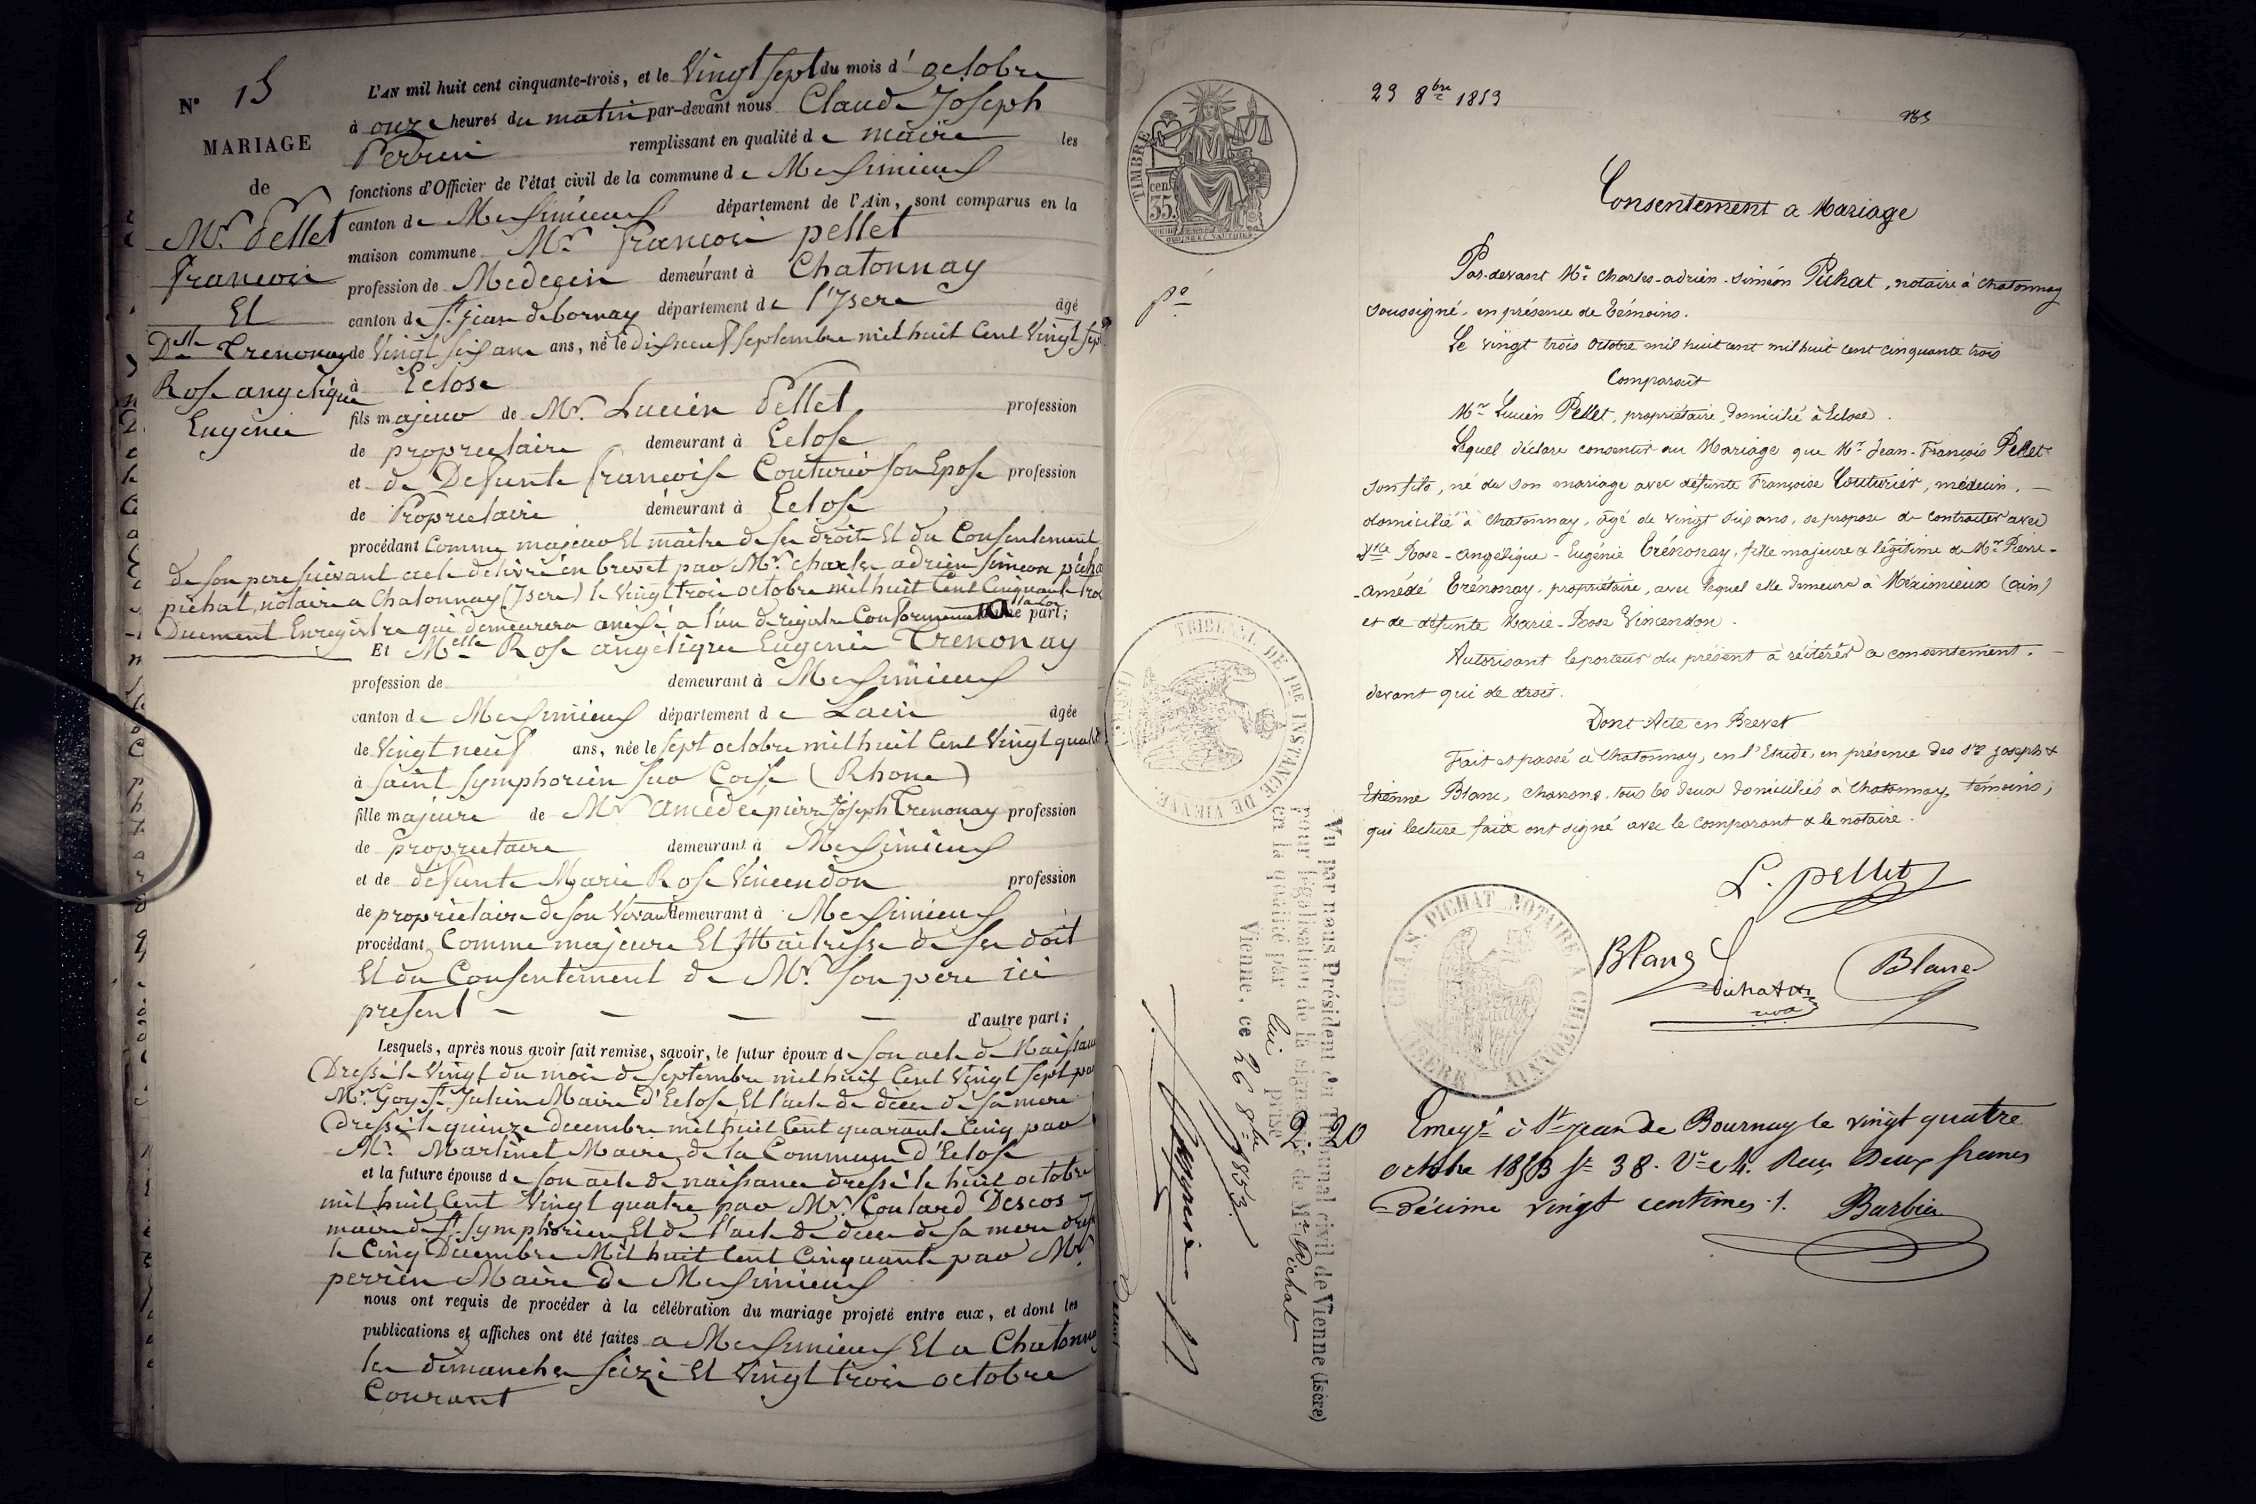 N° 15
MARIAGE
de
Mr. Pellet
François
Et
Dlle Trenonay
Rose angelique
Eugénie
L'AN mil huit cent cinquante-trois, et le Vingt sept du mois d'octobre
à onze heures du matin par-devant nous Claude Joseph
Perrin remplissant en qualité de maire les
fonctions d'Officier de l'état civil de la commune de Meximieux
canton de Meximieux département de l'Ain, sont comparus en la
maison commune Mr. françois pellet
profession de Medecin demeurant à Chatonnay
canton de St jean de bornay département de l'Isere âgé
de Vingt six ans ans, né le dix neuf septembre mil huit Cent Vingt sept
à Eclose
fils majeur de Mr. Lucien Pellet profession
de proprietaire demeurant à Eclose
et de Defunte françoise Couturier son Epose profession
de Proprietaire demeurant à Eclose
procédant Comme majeur Et maitre de ses droits Et du Consentement
de son pere suivant acte delivré en brevet par Mr. charles adrien simeon
pichat, notaire a Chatonnay (Isere) le Vingt trois octobre mil huit Cent Cinquante trois
Duement Enregistre qui demeurera anexé a l'un de registre Conformement a la loi d'une part;
Et Melle Rose angélique Eugenie Trenonay
profession de demeurant à Meximieux
canton de Meximieux département de Lain âgée
de Vingt neuf ans, née le sept octobre mil huit Cent Vingt quatre
à saint symphorien sur Coise (Rhone)
fille majeure de Mr amédée pierre joseph Trenonay profession
de proprietaire demeurant à Meximieux
et de defunte Marie Rose Vincendon profession
de proprietaire de son Vivant demeurant à Meximieux
procédant Comme majeure Et Maitresse de ses doit
Et du Consentement de Mr. son pere ici
present d'autre part;
Lesquels, après nous avoir fait remise, savoir, le futur époux de son acte de Naissance
Dressé le Vingt du mois de septembre mil huit Cent Vingt sept par
Mr. Goy St. Julien Maire d'Eclose Et l'acte de deces de sa mere
dressé le quinze decembre mil huit Cent quarante Cinq par
Mr. Martinet Maire de la Commune d'Eclose
et la future épouse de son acte de naissance dressé le huit octobre
mil huit Cent Vingt quatre par Mr. Coulard Descos
maire de St. Symphorien Et de l'acte de deces de sa mere dressé
le Cinq Decembre Mil huit Cent Cinquante par Mr.
perrin Maire de Meximieux
nous ont requis de procéder à la célébration du mariage projeté entre eux, et dont les
publications et affiches ont été faites a Meximieux Et a Chatonnay
les dimanches seize Et Vingt trois octobre
Courant
23 8bre 1853
TIMBRE
35 cen.
Consentement a Mariage
Par-devant Me Charles-adrien-siméon Pichat, notaire à Chatonnay
soussigné, en présence de témoins.
Le vingt trois Octobre mil huit cent mil huit cent cinquante trois
Comparait
Mr Lucien Pellet, propriétaire, domicilié à Eclose.
Lequel déclare consentir au Mariage que Mr Jean-François Pellet
son fils, né de son mariage avec défunte Françoise Couturier, médecin,
domicilié à Chatonnay, âgé de vingt six ans, se propose de contracter avec
Dlle Rose-Angélique-Eugénie Trénonay, fille majeure & légitime de Mr Pierre-
-amédé Trénonay, propriétaire, avec lequel elle demeure à Méximieux (ain)
et de défunte Marie-Rose Vincendon.
Autorisant le porteur du présent à réitérer ce consentement.
devant qui de droit.
Dont Acte en Brevet
Fait et passé à Chatonnay, en l'Etude, en présence des Srs Joseph &
Etienne Blanc, charrons, tous les deux domiciliés à Chatonnay, témoins;
qui lecture faite ont signé avec le comparant & le notaire.
L. pellet
Blanc
Pichat
Blanc
CH. A. S. PICHAT NOTAIRE A CHATONNAY (ISERE)
TRIBUNAL DE 1re INSTANCE DE VIENNE (ISERE)
Vu par nous Président du Tribunal civil de Vienne (Isère)
pour légalisation de la signature de Me Pichat
en la qualité par lui prise
Vienne, ce 26 8bre 1853.
2 20
Enregé à St jean de Bournay le vingt quatre
octobre 1853 fo 38. Vo c 4. Reçu Deux francs
Décime vingt centimes.
Barbier